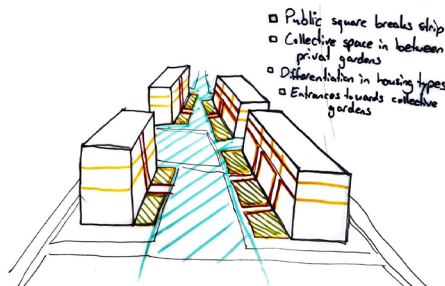 Public square breaks strip
Collective space in between
privat gardens
Differentiation in housing types
Entrances towards collective
gardens